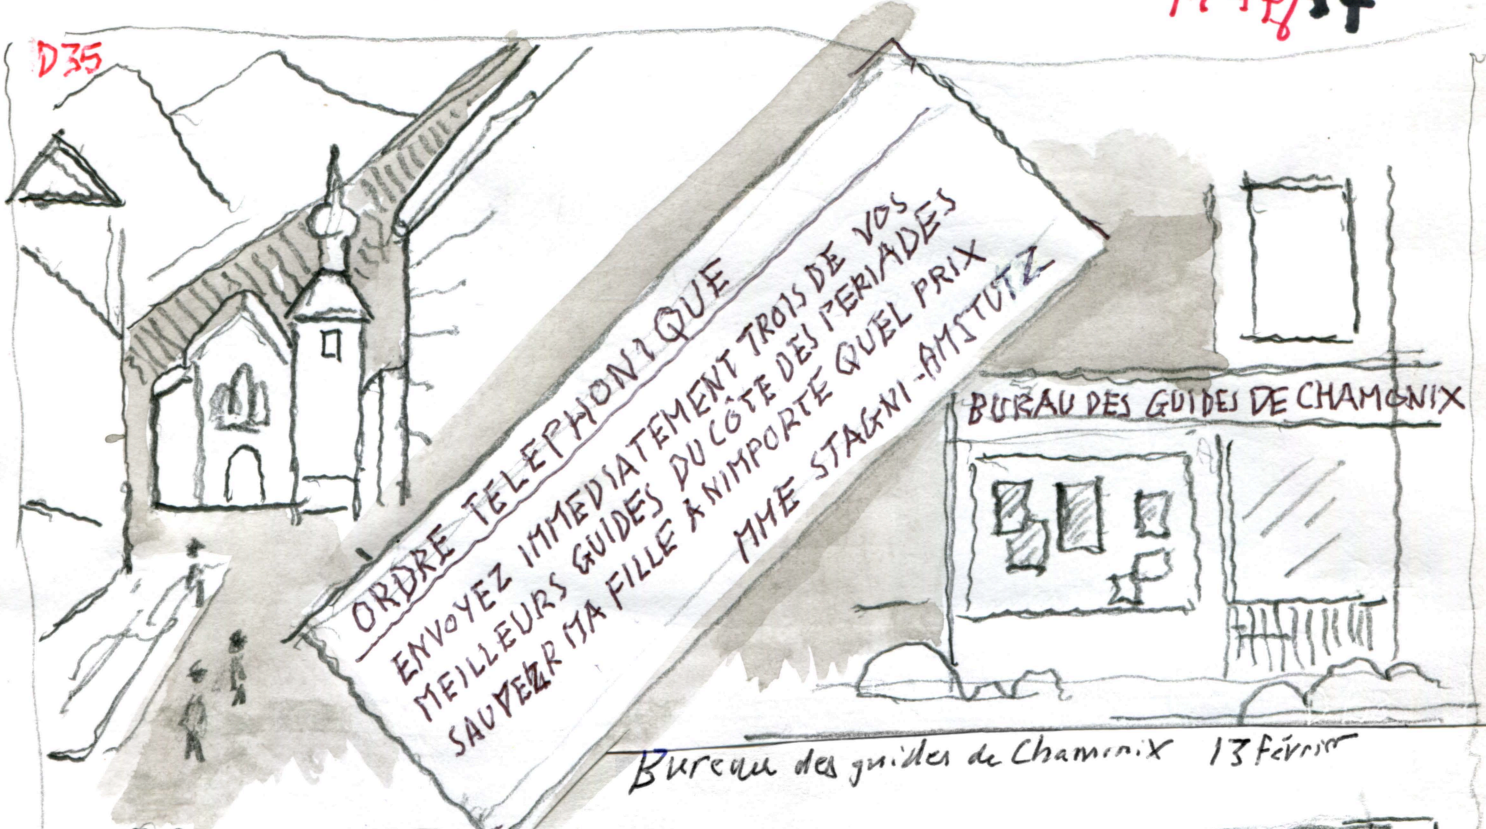 D35
ORDRE TELEPHONIQUE
ENVOYEZ IMMEDIATEMENT TROIS DE VOS
MEILLEURS GUIDES DU CÔTE DES PERIADES
SAUVEZR MA FILLE A NIMPORTE QUEL PRIX
MME STAGNI-AMSTUTZ
BURAU DES GUIDES DE CHAMONIX
Bureau des guides de Chamonix 13 février